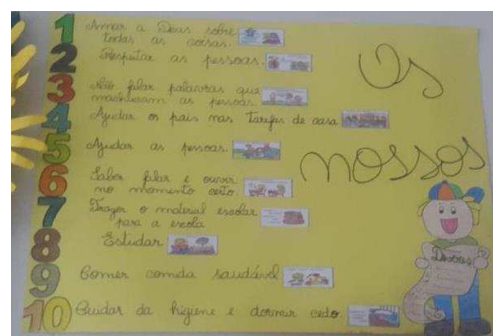 1 Amar a Deus sobre
todas as coisas.
2 Respeitar as pessoas.
3 Não falar palavras que
machucam as pessoas.
4 Ajudar os pais nas tarefas de casa
5 Ajudar as pessoas.
6 Saber falar e ouvir
no momento certo.
7 Trazer o material escolar
para a escola
8 Estudar
9 Comer comida saudável
10 Cuidar da higiene e dormir cedo
Os
nossos